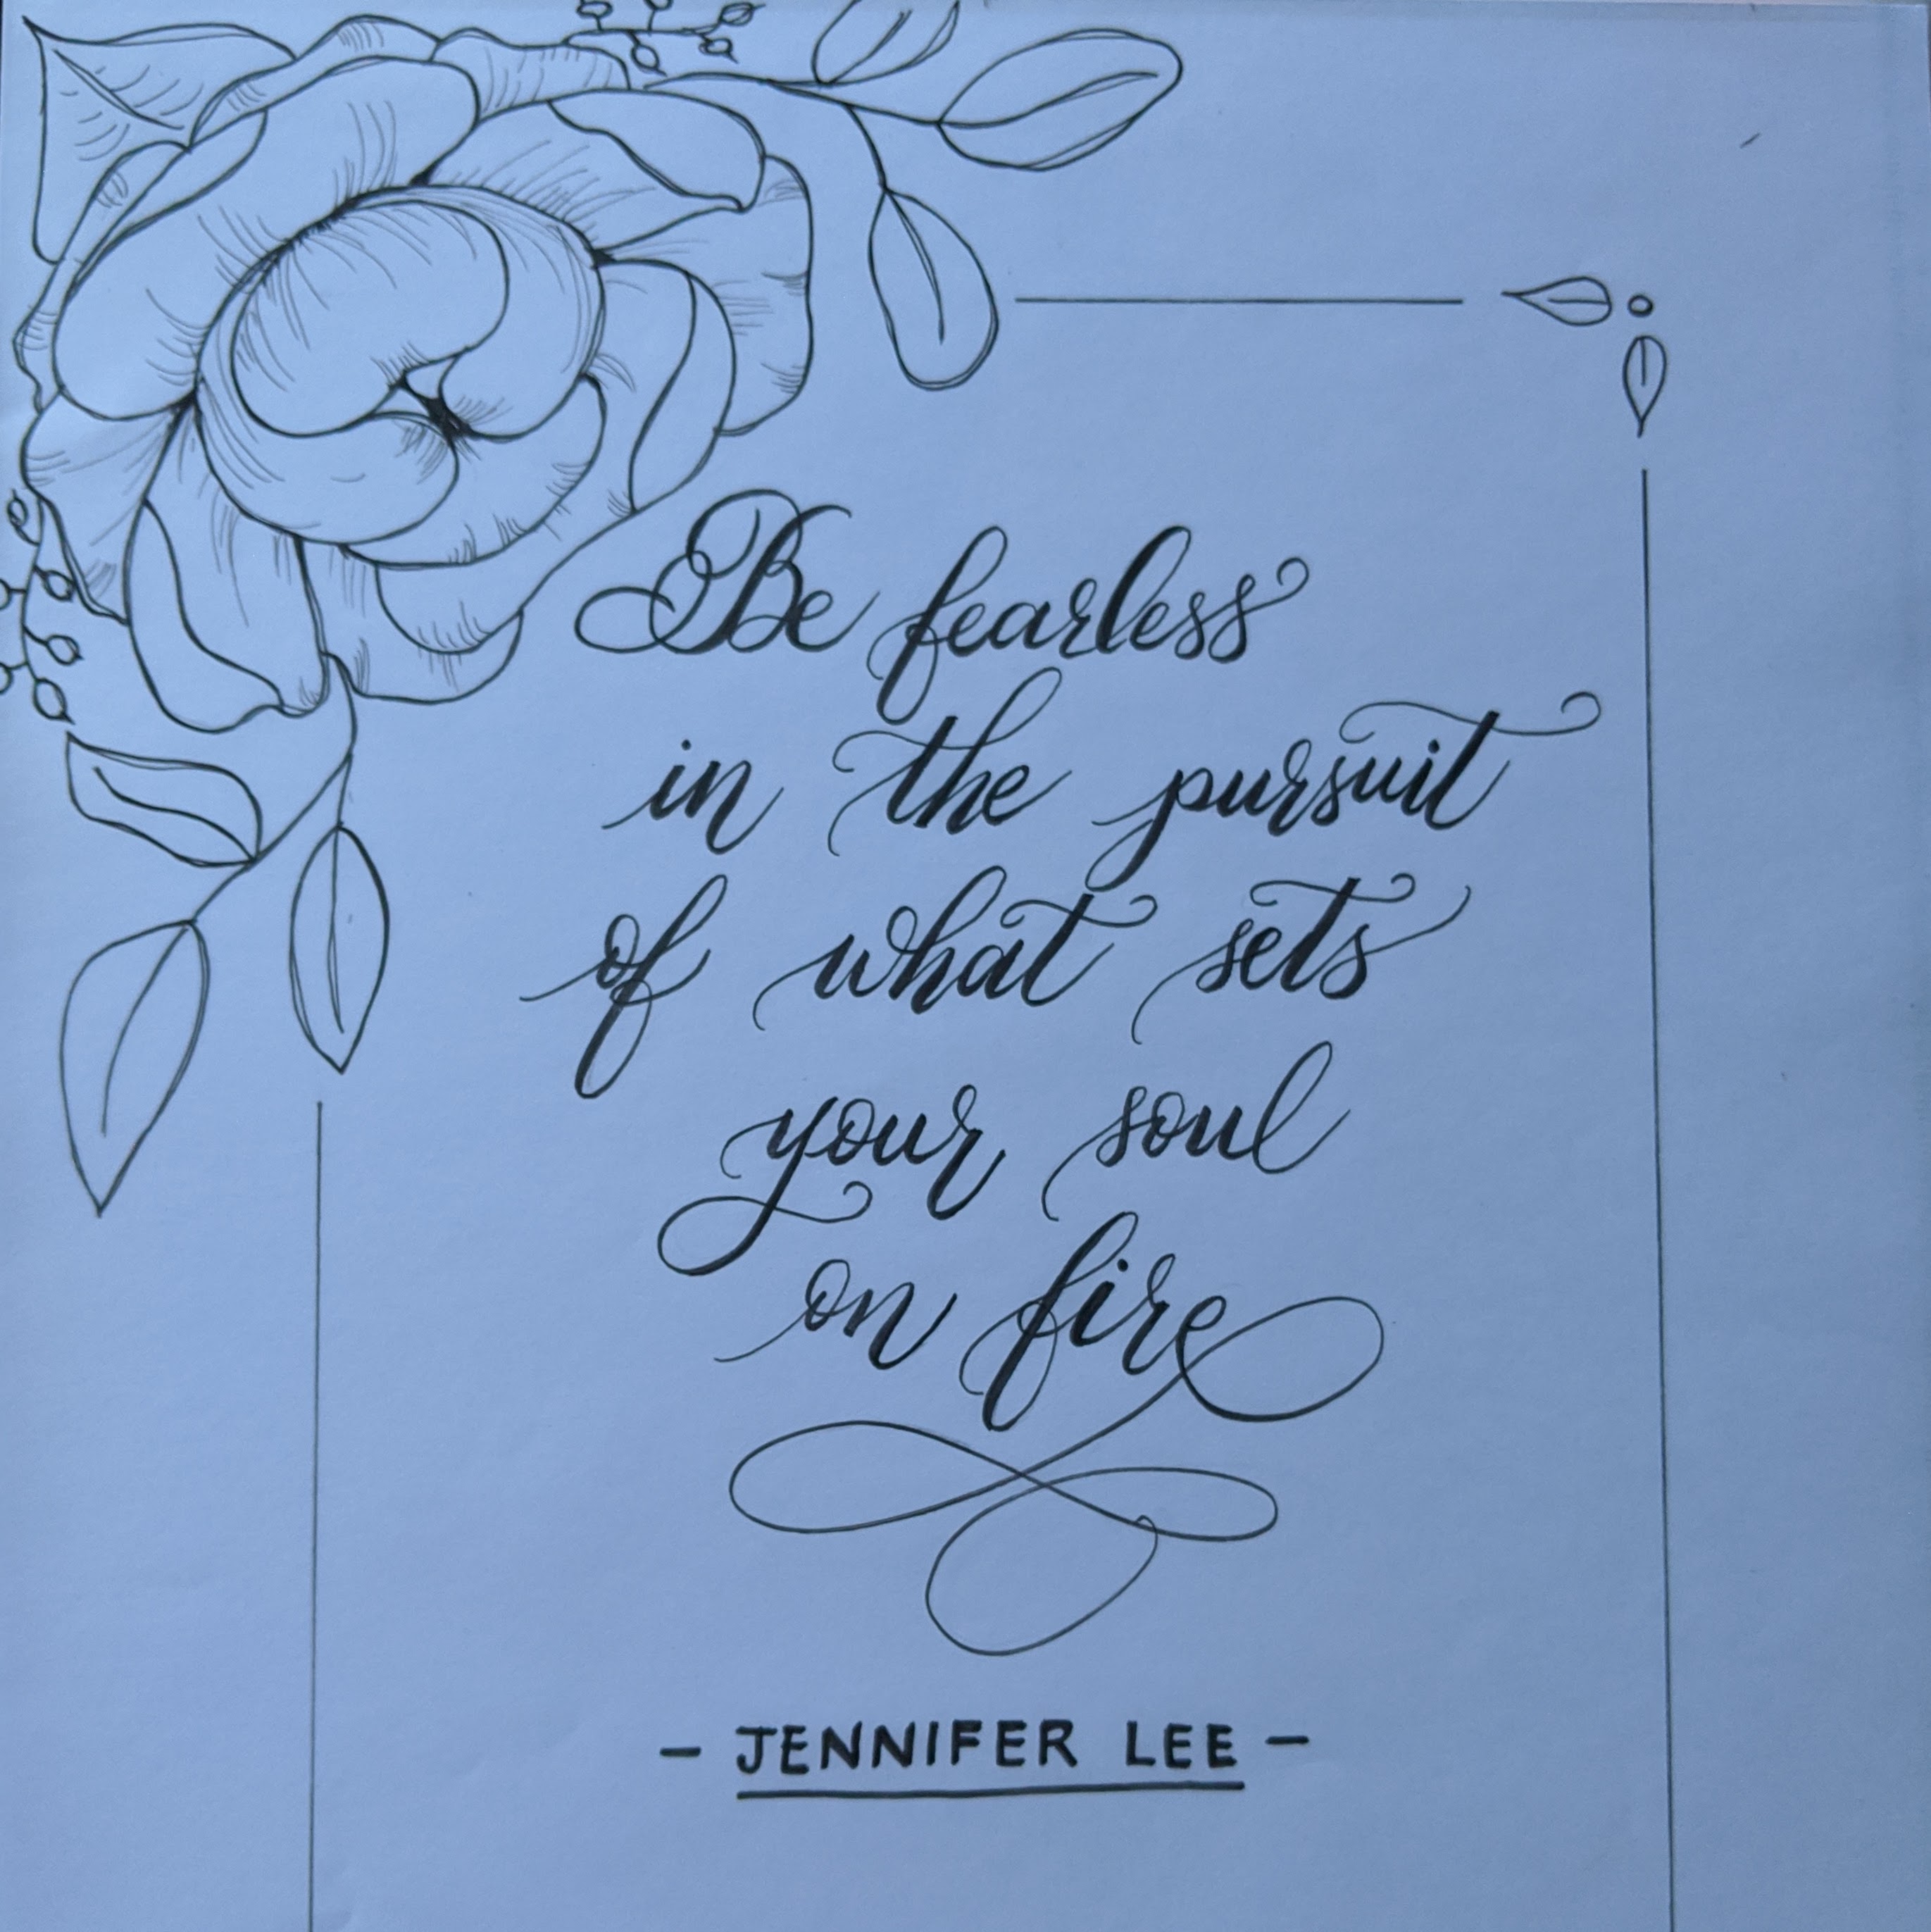 Be fearless
in the pursuit
of what sets
your soul
on fire
- JENNIFER LEE -